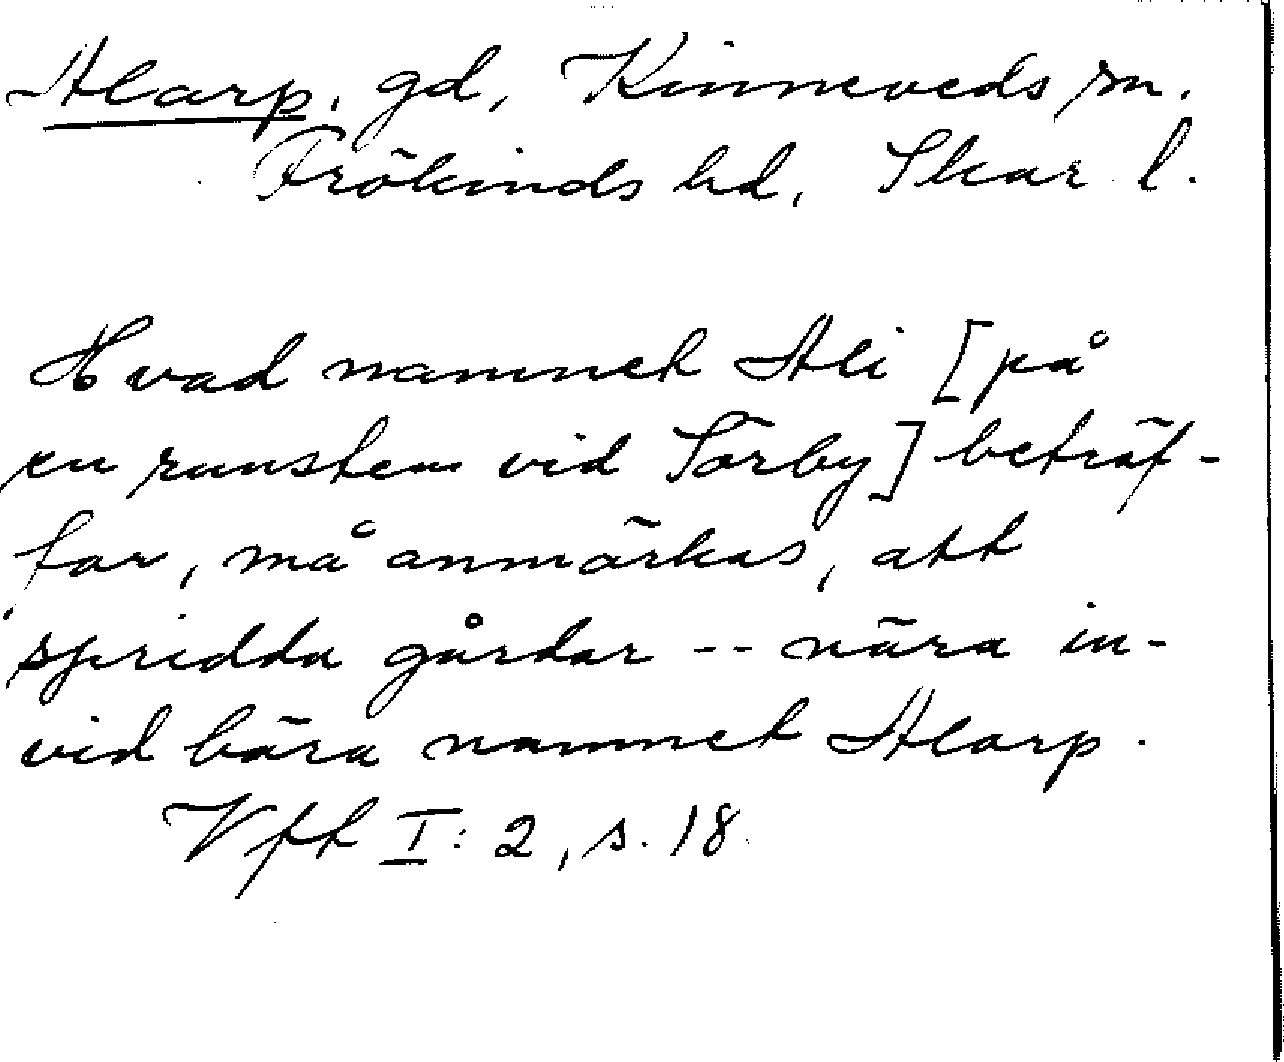 Alarp, gd, Kinneveds sn,
Frökinds hd, Skar. l.
Hvad namnet Ali [på
en runsten vid Sörby] beträf-
far, må anmärkas, att
spridda gårdar -- nära in-
vid bära namnet Alarp.
Vft I: 2, s. 18.